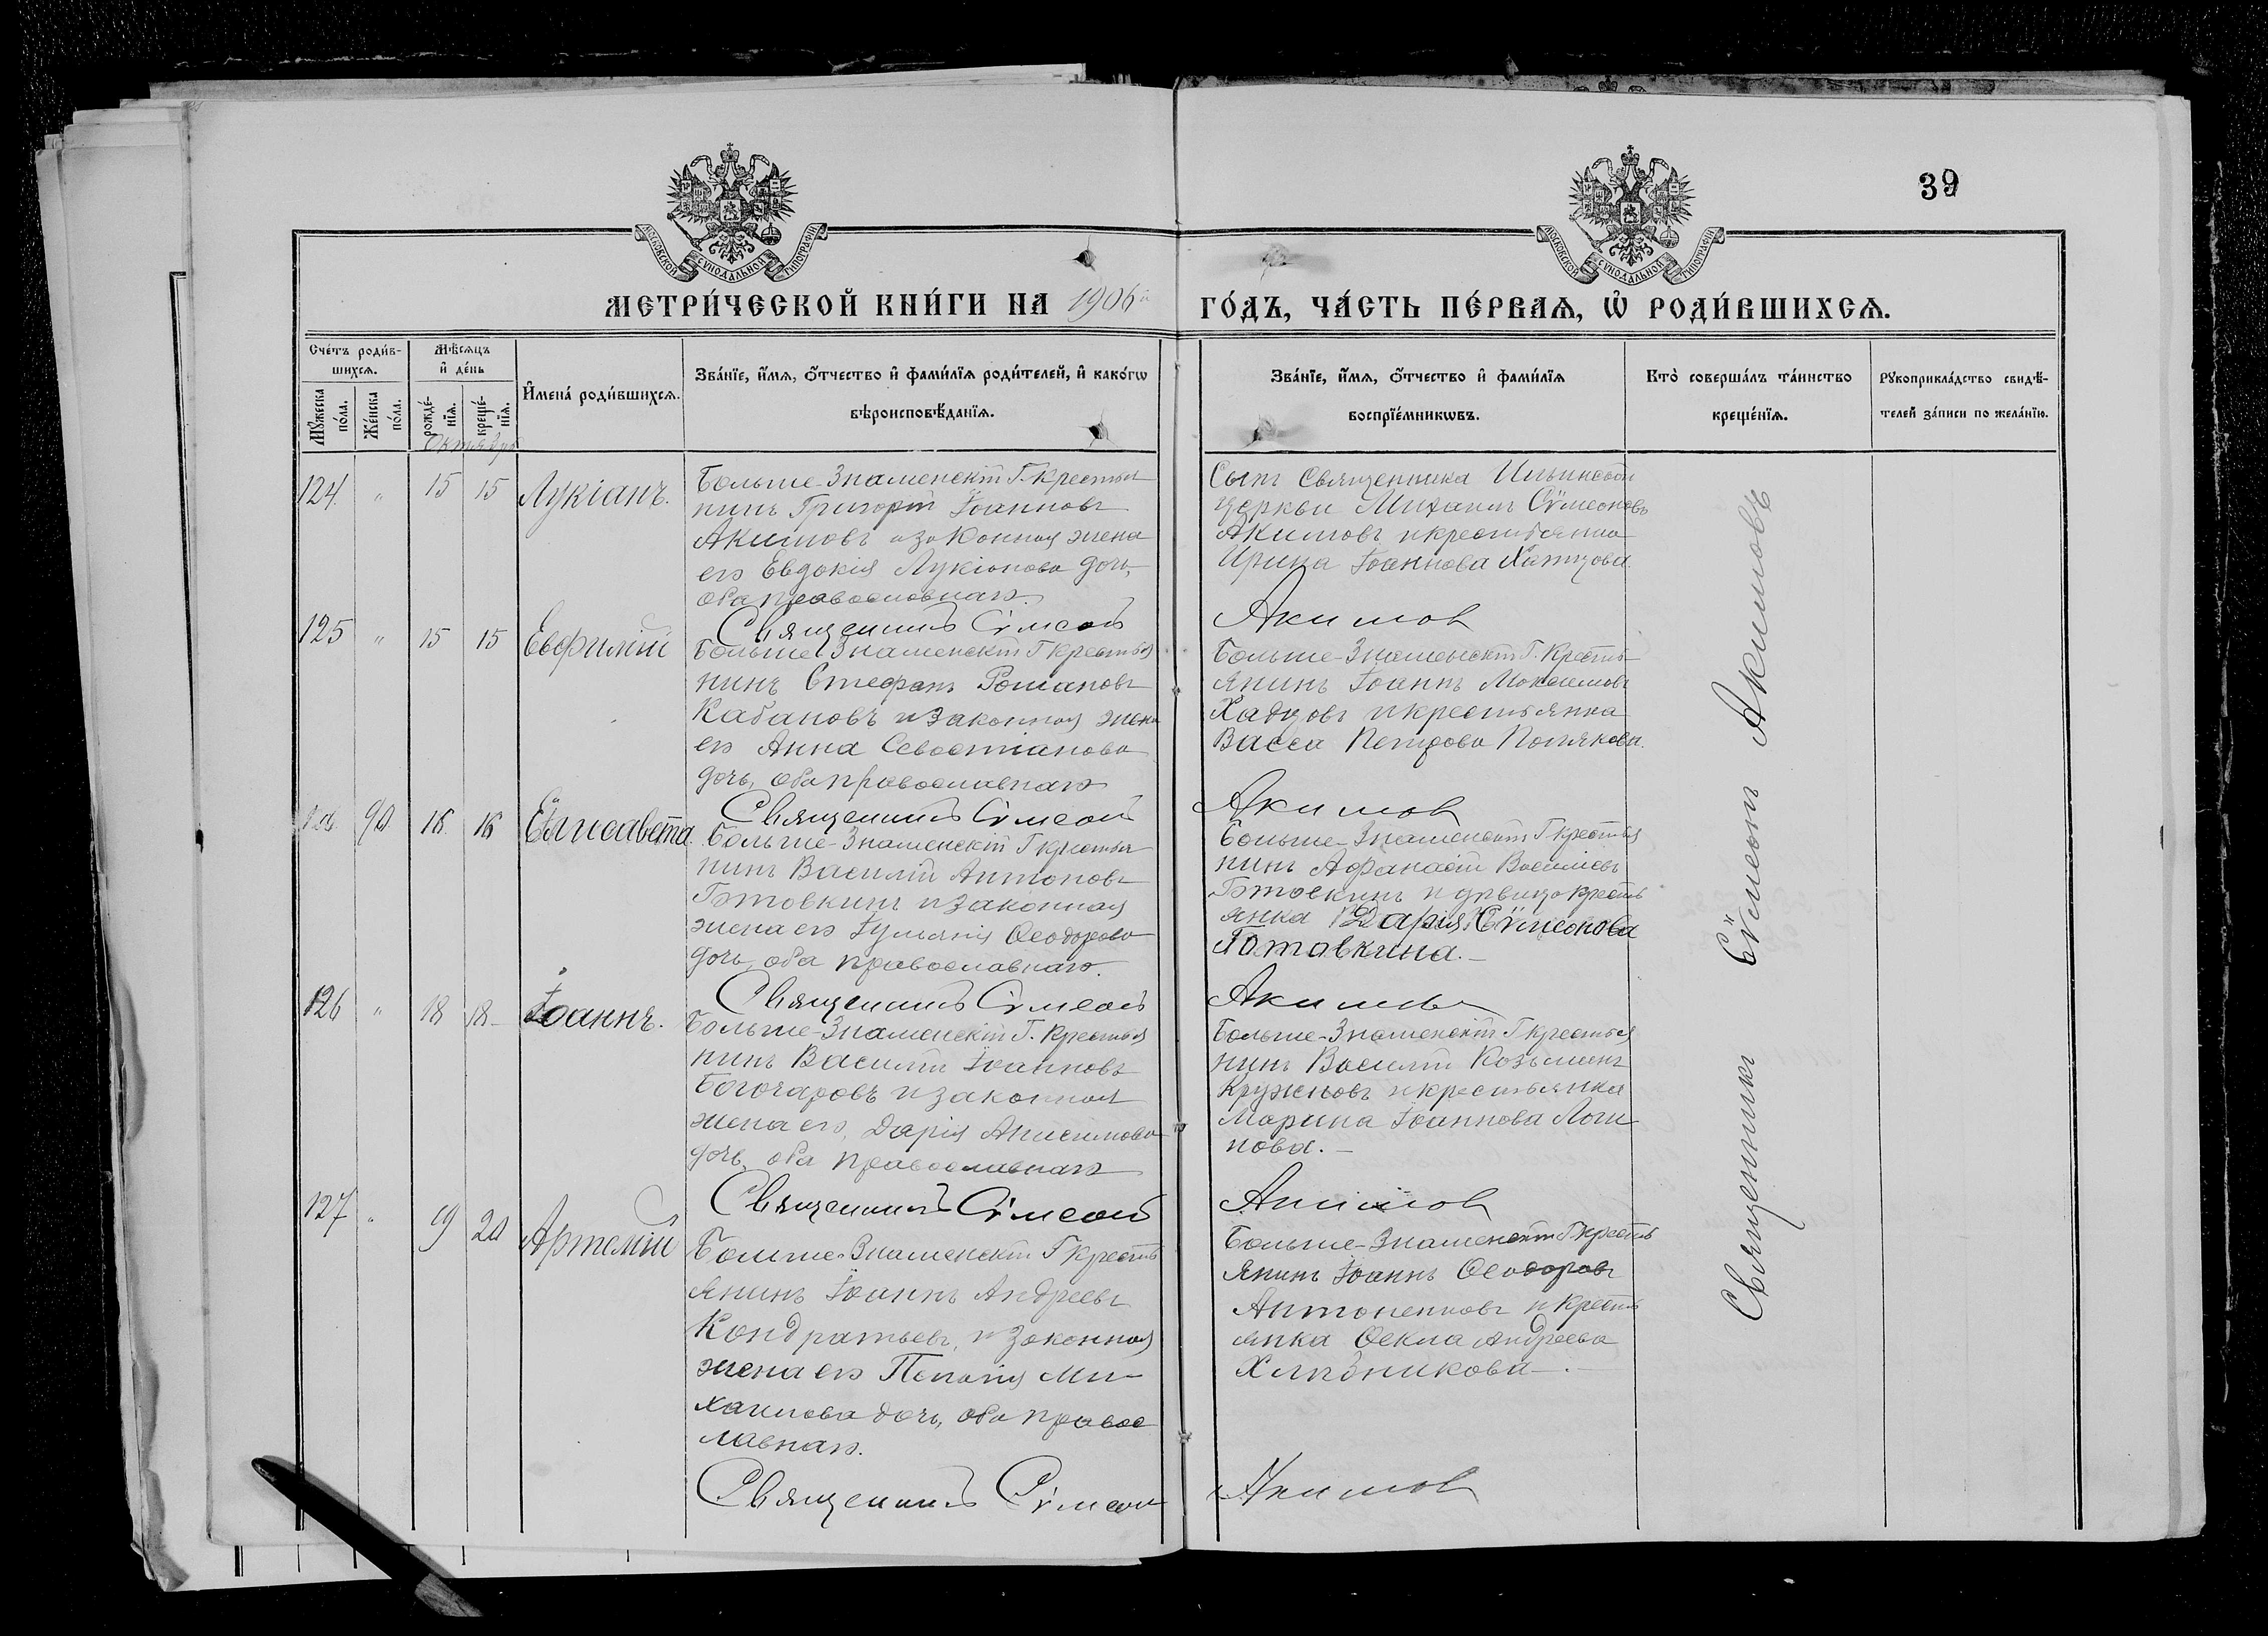 39
МОСКОВСКОЙ СѴНОДАЛЬНОЙ ТИПОГРАФІИ
МОСКОВСКОЙ СѴНОДАЛЬНОЙ ТИПОГРАФІИ
МЕТРИ́ЧЕСКОЙ КНИ́ГИ НА 1906й ГО́ДЪ, ЧА́СТЬ ПЕ́РВАѦ, Ѡ҆ РОДИ́ВШИХСѦ.
Сче́тъ роди́в-
шихсѧ.
Мꙋ́жеска по́ла.
Же́нска по́ла.
Мѣ́сѧцъ
и҆ де́нь
рожде́-нїѧ.
креще́-нїѧ.
И҆мена̀ роди́вшихсѧ.
Зва́нїе, и҆́мѧ, ѻ҆́тчество и҆ фами́лїѧ роди́телей, и҆ како́гѡ
вѣроисповѣ́данїѧ.
Зва́нїе, и҆́мѧ, ѻ҆́тчество и҆ фами́лїѧ
воспрїе́мникѡвъ.
Кто̀ соверша́лъ та́инство
креще́нїѧ.
Рꙋкоприкла́дство свидѣ́-
телей за́писи по жела́нїю.
Октябрь
124 " 15 15 Лукіанъ.
Больше-Знаменскій Г. крестья
нинъ Григорій Іоанновъ
Акимовъ и законная жена
его Евдокія Лукіанова дочь,
оба православнаго.
Сынъ Священника Ильинской
церкви Михаилъ Сѵмеоновъ
Акимовъ и крестьянка
Ирина Іоаннова
Священникъ Сѵмеонъ Акимовъ
125 " 15 15 Евфимій
Больше Знаменскій Г крестья
нинъ Стефанъ Романовъ
Кабановъ и законная жена
его Анна Севостіанова
дочь, оба православнаго
Больше-Знаменскій Г. Кресть-
янинъ Іоаннъ
и крестьянка
Васса Петрова Полякова.
Священникъ Сѵмеонъ Акимовъ
90 16 16 Елисавета
Больше-Знаменскій Г крестья
нинъ Василій Антоновъ
Готовкинъ и законная
жена его Іуліанія Ѳеодорова
дочь, оба православнаго.
Больше-Знаменскій Г крестья
нинъ Афанасій Василіевъ
Готовкинъ и дѣвица кресть
янка Дарія Сѵмеонова
Готовкина.
Священникъ Сѵмеонъ Акимовъ
126 " 18 18 Іоаннъ.
Больше-Знаменскій Г. крестья
нинъ Василій Іоанновъ
Богочаровъ и законная
жена его, Дарія Анисимова
дочь, оба православнаго
Больше-Знаменскій Г крестья
нинъ Василій Козьминъ
Кружновъ и крестьянка
Марина Іоаннова Логи
нова.
Священникъ Сѵмеонъ Акимовъ
127 " 19 20 Артемій
Больше-Знаменскій Г кресть
янинъ Іоаннъ Андреевъ
Кондратьевъ, и законная
жена его Пелагія Ми-
хаилова дочь, оба правос
лавнаго.
Больше-Знаменскій Г кресть
янинъ Іоаннъ Ѳеодоровъ
Антоненковъ и кресть
янка Ѳекла Андреева
Священникъ Сѵмеонъ Акимовъ
Священникъ Сѵмеонъ Акимовъ